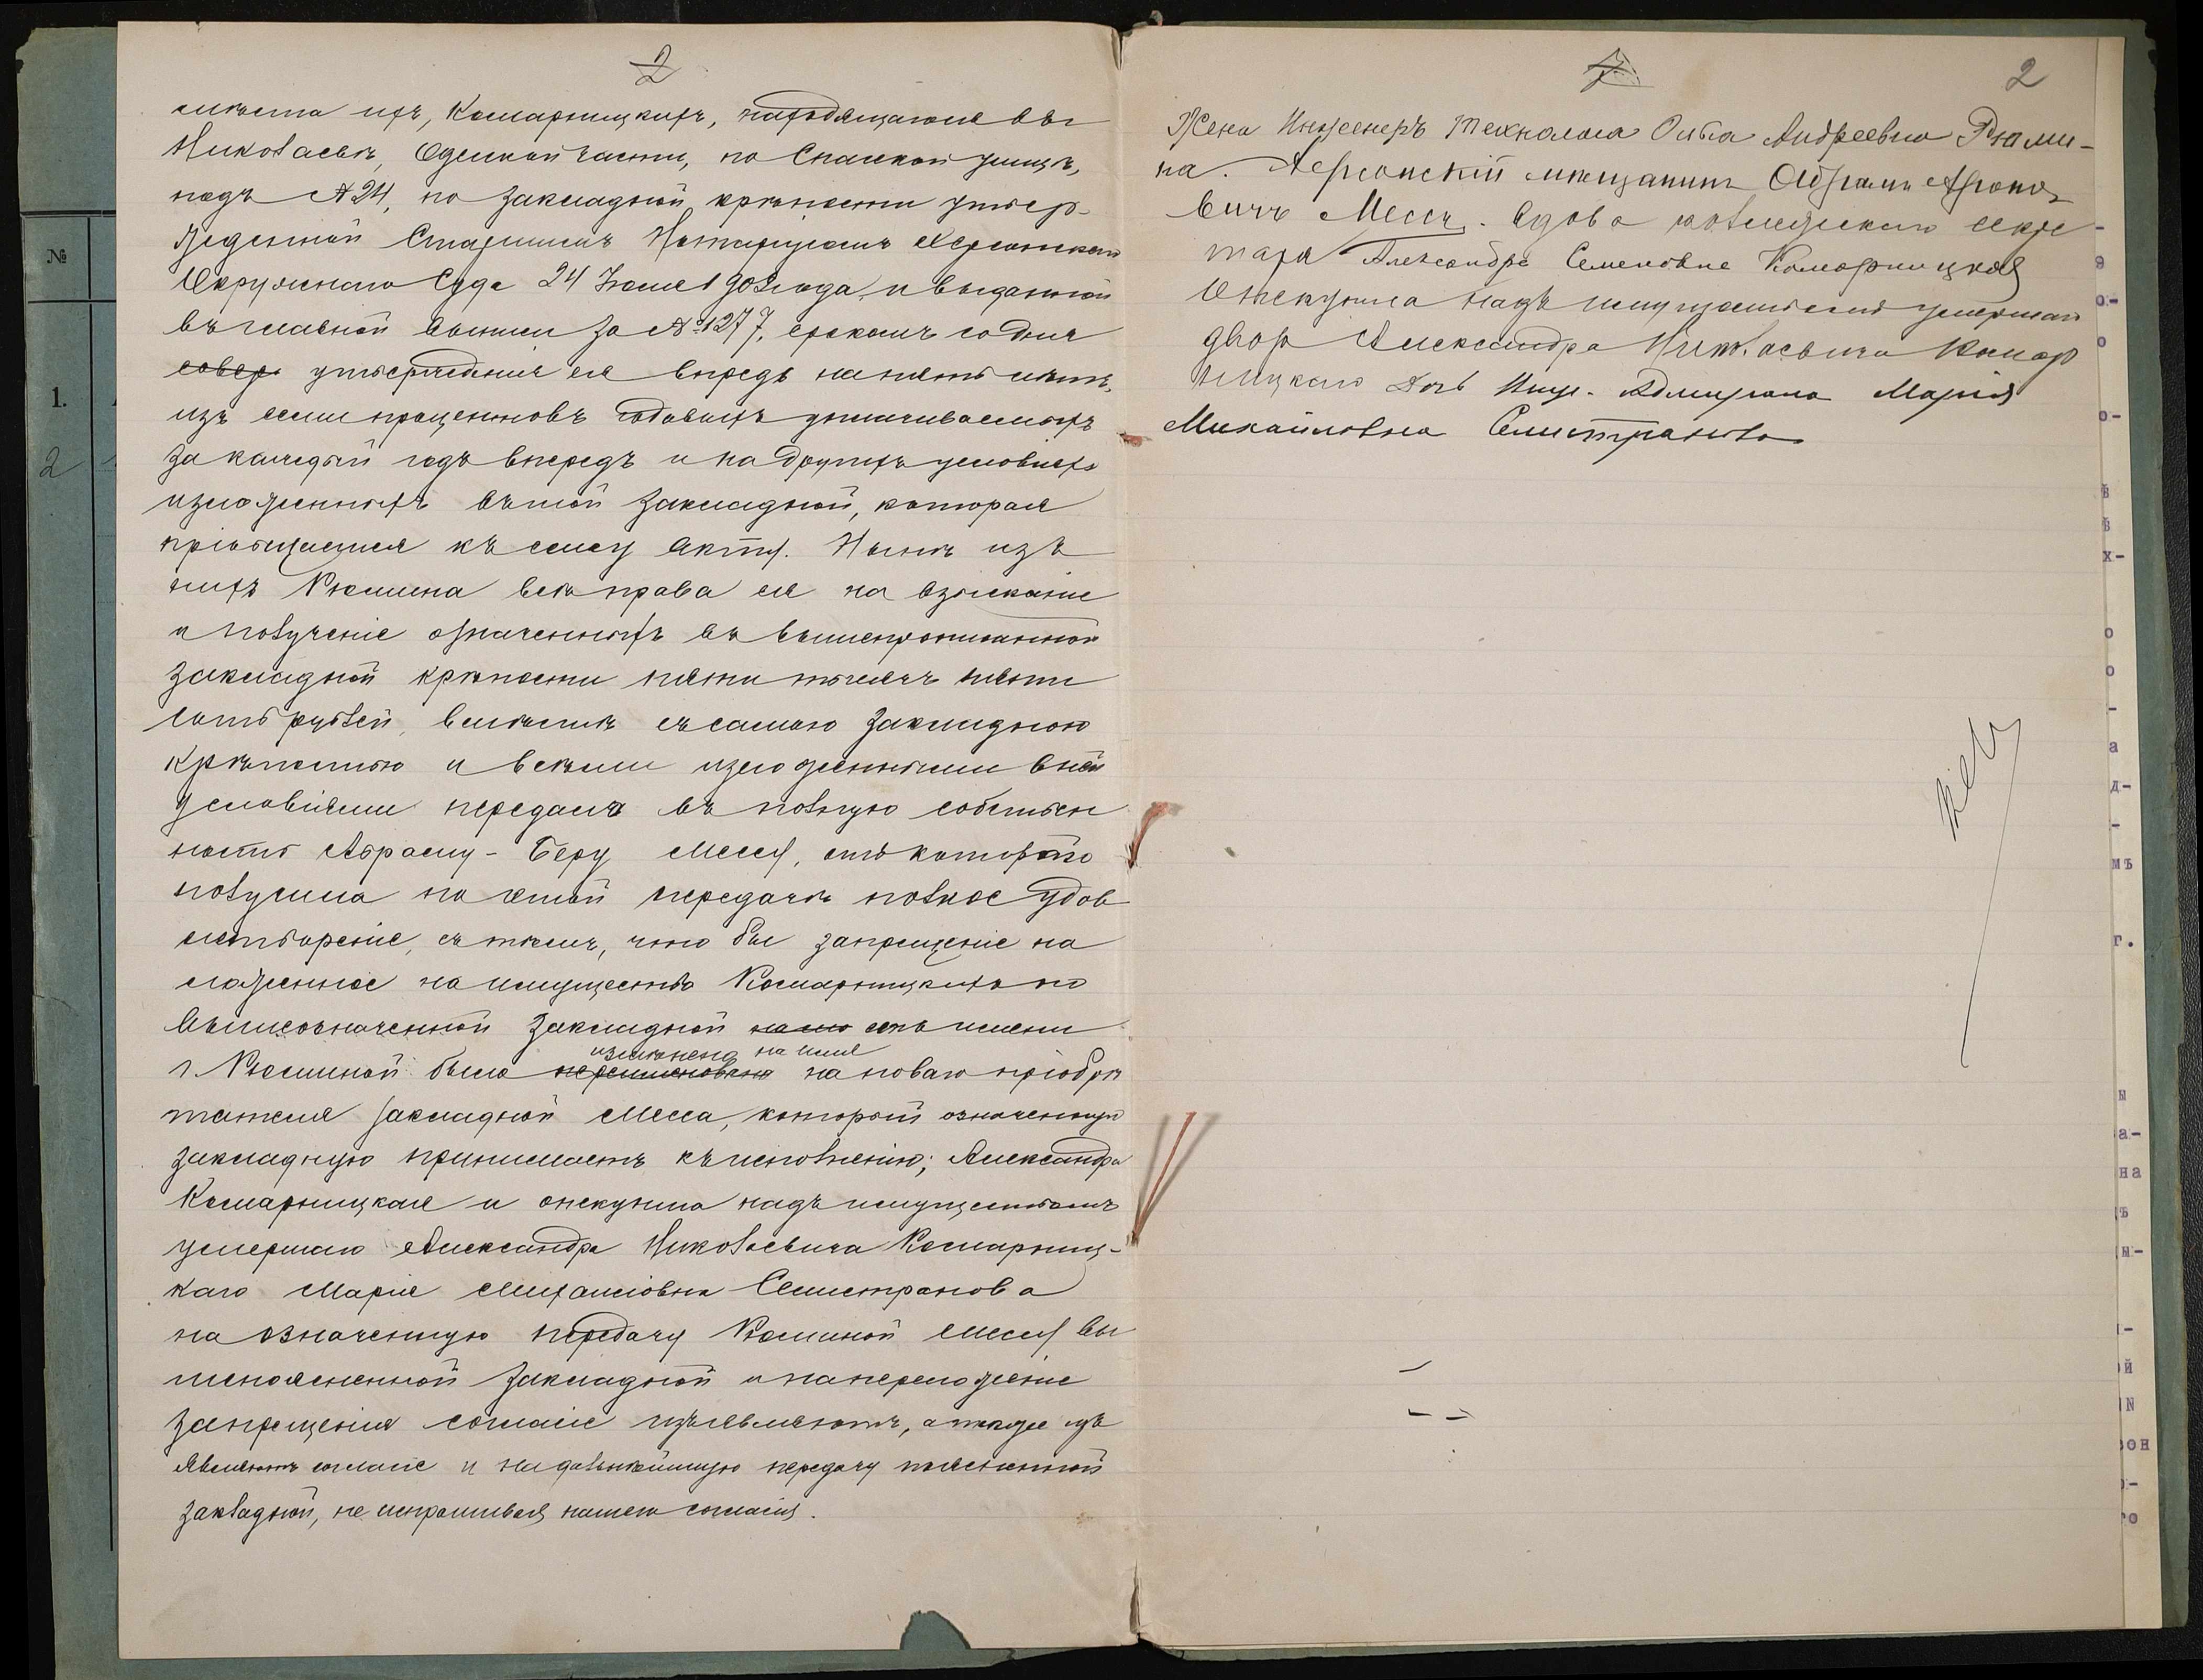 2
мѣста ихъ, Комарницкихъ, находящагося въ г
Николаевѣ, Одесской части, по Спасской улицѣ,
подъ № 24, по закладной крѣпости утвер-
жденной Старшимъ Нотаріусомъ Херсонскаго
Окружнаго Суда 24 1902 года, и выданной
въ главной выписи за № 1277, срокомъ со дня
совер утвержденія ея впредь на пять лѣтъ,
изъ семи процентовъ годовыхъ уплачиваемыхъ
за каждый годъ впередъ и на другихъ условіяхъ
изложенныхъ въ той закладной, которая
пріобщается къ сему акту. Нынѣ изъ
нихъ Рюмина всѣ права ея на взысканіе
и полученіе означенныхъ въ вышепрописанной
закладной крѣпости пяти тысячъ пяти
сотъ рублей, вмѣстѣ съ самою закладною
крѣпостью и всѣми изложенными в ней
условіями передала въ полную собствен
ность Абраму-Беру Мессу, отъ котораго
получила по этой передачѣ полное удов
летвореніе, съ тѣмъ, что бы запрещеніе на
ложенное на имущество Комарницкихъ по
вышеозначенной закладной съ имени
измѣнено на имя
г. Рюминой было переименовано на новаго пріобрѣ
тателя закладной Месса, который означенную
закладную принимаетъ къ исполненію; Александра
Комарницкая и опекунша надъ имуществомъ
умершаго Александра Николаевича Комарниц-
каго Марія Михайловна Селистранова
на означенную передачу Рюминой Мессу вы
шепоясненной закладной и на переложеніе
запрещенія согласіе изъявляютъ, а также изъ
являютъ согласіе и на дальнѣйшую передачу поясненной
закладной, не испрашивая нашего согласія.
7
2
Жена Инженеръ Технолога Ольга Андреевна Рюми-
на. Херсонскій мѣщанинъ Абрамъ Ароно
вичъ Мессъ. Вдова коллежскаго секре-
таря Александра Семеновна Комарницкая
Опекунша надъ имуществомъ умершаго
двор Александра Николаевича Комар
ницкаго дочь Адмирала Марія
Михайловна Селистранова
№
1.
2
9
о-
о
о-
ѣ
ѣ
х-
о
о
-
а
д-
-
мъ
г.
ы
а-
на
ъ
н-
-
й
N
он
-
го